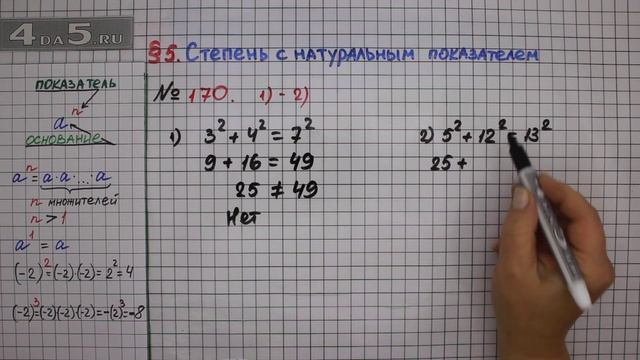 4DA5.RU
§5. Степень с натуральным показателем
№ 170. 1) - 2)
показатель
aⁿ
основание
aⁿ = a·a·...·a
n множителей
n > 1
a¹ = a
(-2)² = (-2)·(-2) = 2² = 4
(-2)³ = (-2)(-2)(-2) = -(2)³ = -8
1) 3² + 4² = 7²
9 + 16 = 49
25 ≠ 49
Нет
2) 5² + 12² = 13²
25 +